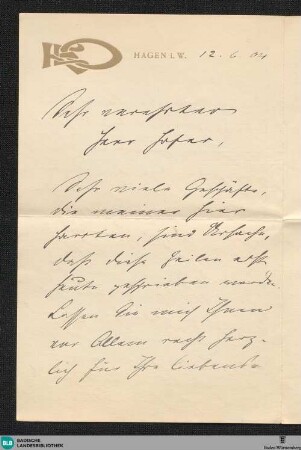 HAGEN I. W. 12. 6. 04
Sehr verehrter
Herr Hofer,
Sehr viele Geschäfte,
die meiner hier
harrten, sind Ursache,
daß diese Zeilen erst
heute geschrieben werden.
Lassen Sie mich Ihnen
vor Allem recht herz-
lich für Ihre liebens-
BLB BADISCHE
LANDESBIBLIOTHEK
Baden-Württemberg